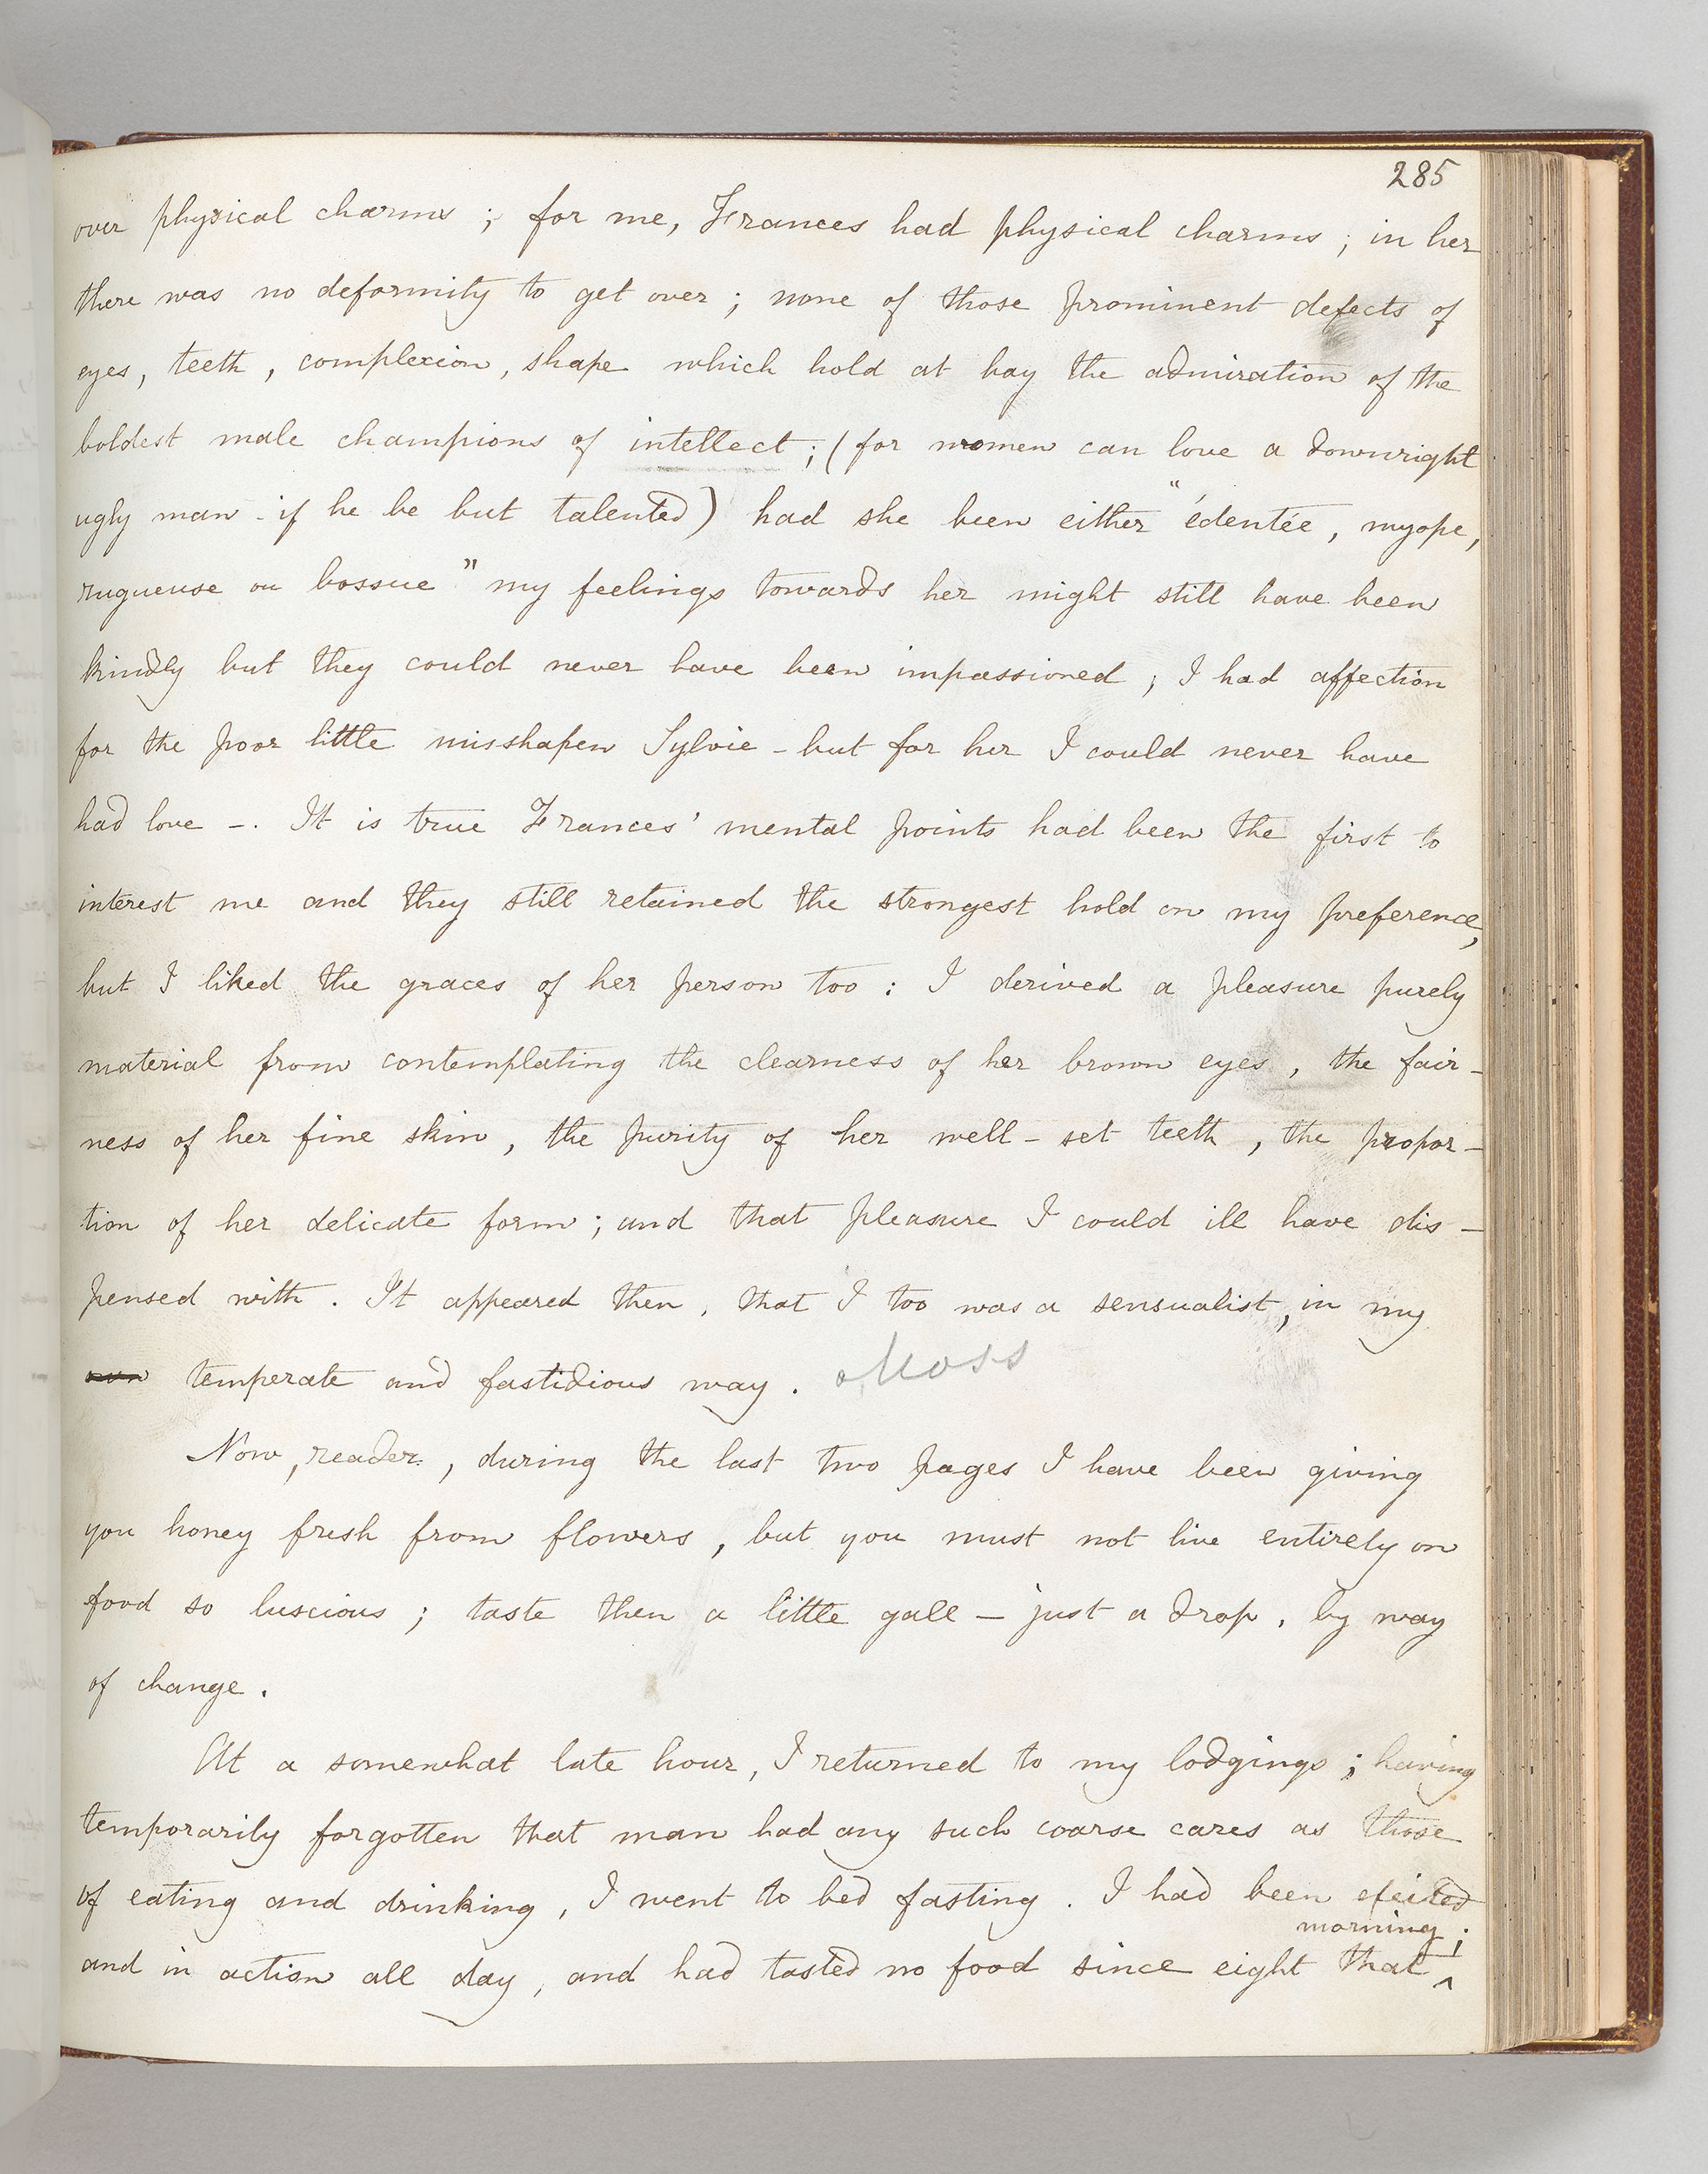 285
over physical charms ; for me, Frances had physical charms ; in her
there was no deformity to get over ; none of those prominent defects of
eyes, teeth, complexion, shape which hold at bay the admiration of the
boldest male champions of intellect ; (for women can love a downright
ugly man - if he be but talented) had she been either "édentée, myope,
rugueuse ou bossue" my feelings towards her might still have been
kindly but they could never have been impassioned ; I had affection
for the poor little misshapen Sylvie - but for her I could never have
had love -. It is true Frances' mental points had been the first to
interest me and they still retained the strongest hold on my preference,
but I liked the graces of her person too : I derived a pleasure purely
material from contemplating the clearness of her brown eyes, the fair-
ness of her fine skin, the purity of her well-set teeth, the propor-
tion of her delicate form ; and that pleasure I could ill have dis-
pensed with. It appeared then, that I too was a sensualist, in my
own temperate and fastidious way. Moss
Now, reader, during the last two pages I have been giving
you honey fresh from flowers, but you must not live entirely on
food so luscious ; taste then a little gall - just a drop, by way
of change.
At a somewhat late hour, I returned to my lodgings ; having
temporarily forgotten that man had any such coarse cares as those
of eating and drinking, I went to bed fasting. I had been exeited
morning ;
and in action all day, and had tasted no food since eight that ^